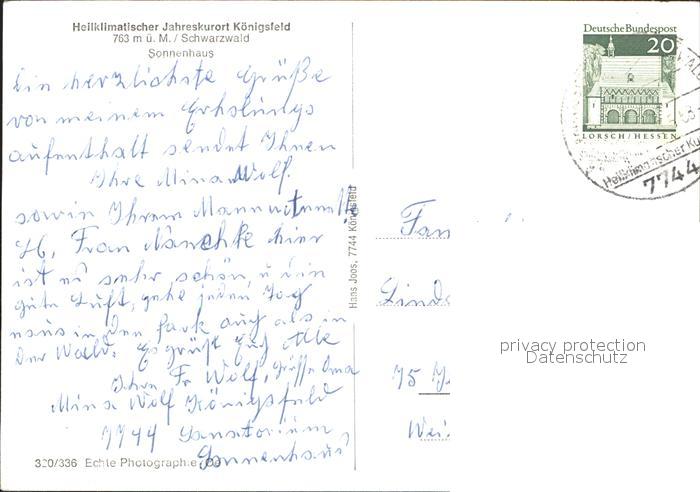 Heilklimatischer Jahreskurort Königsfeld
763 m ü. M. / Schwarzwald
Sonnenhaus
Ein herzlichste Grüße
von meinem Erholungs
aufenthalt sendet Ihnen
Ihre Mina Wolf.
sowie Ihrem Mann
Frau hier
ist es sehr schön, u ein
gute Luft, gehe jeden Tag
naus in den Park auch als in
der Wald. Es grüßt Euch Alle
Ihre Fr Wolf, Grüsse Oma
Mina Wolf Königsfeld
7744 Sanatorium
Sonnenhaus
320/336 Echte Photographie
Hans Joos, 7744 Königsfeld
Deutsche Bundespost
20
LORSCH/HESSEN
Heilklimatischer Ku
7744
Fam
Linde
75
Wei
privacy protection
Datenschutz